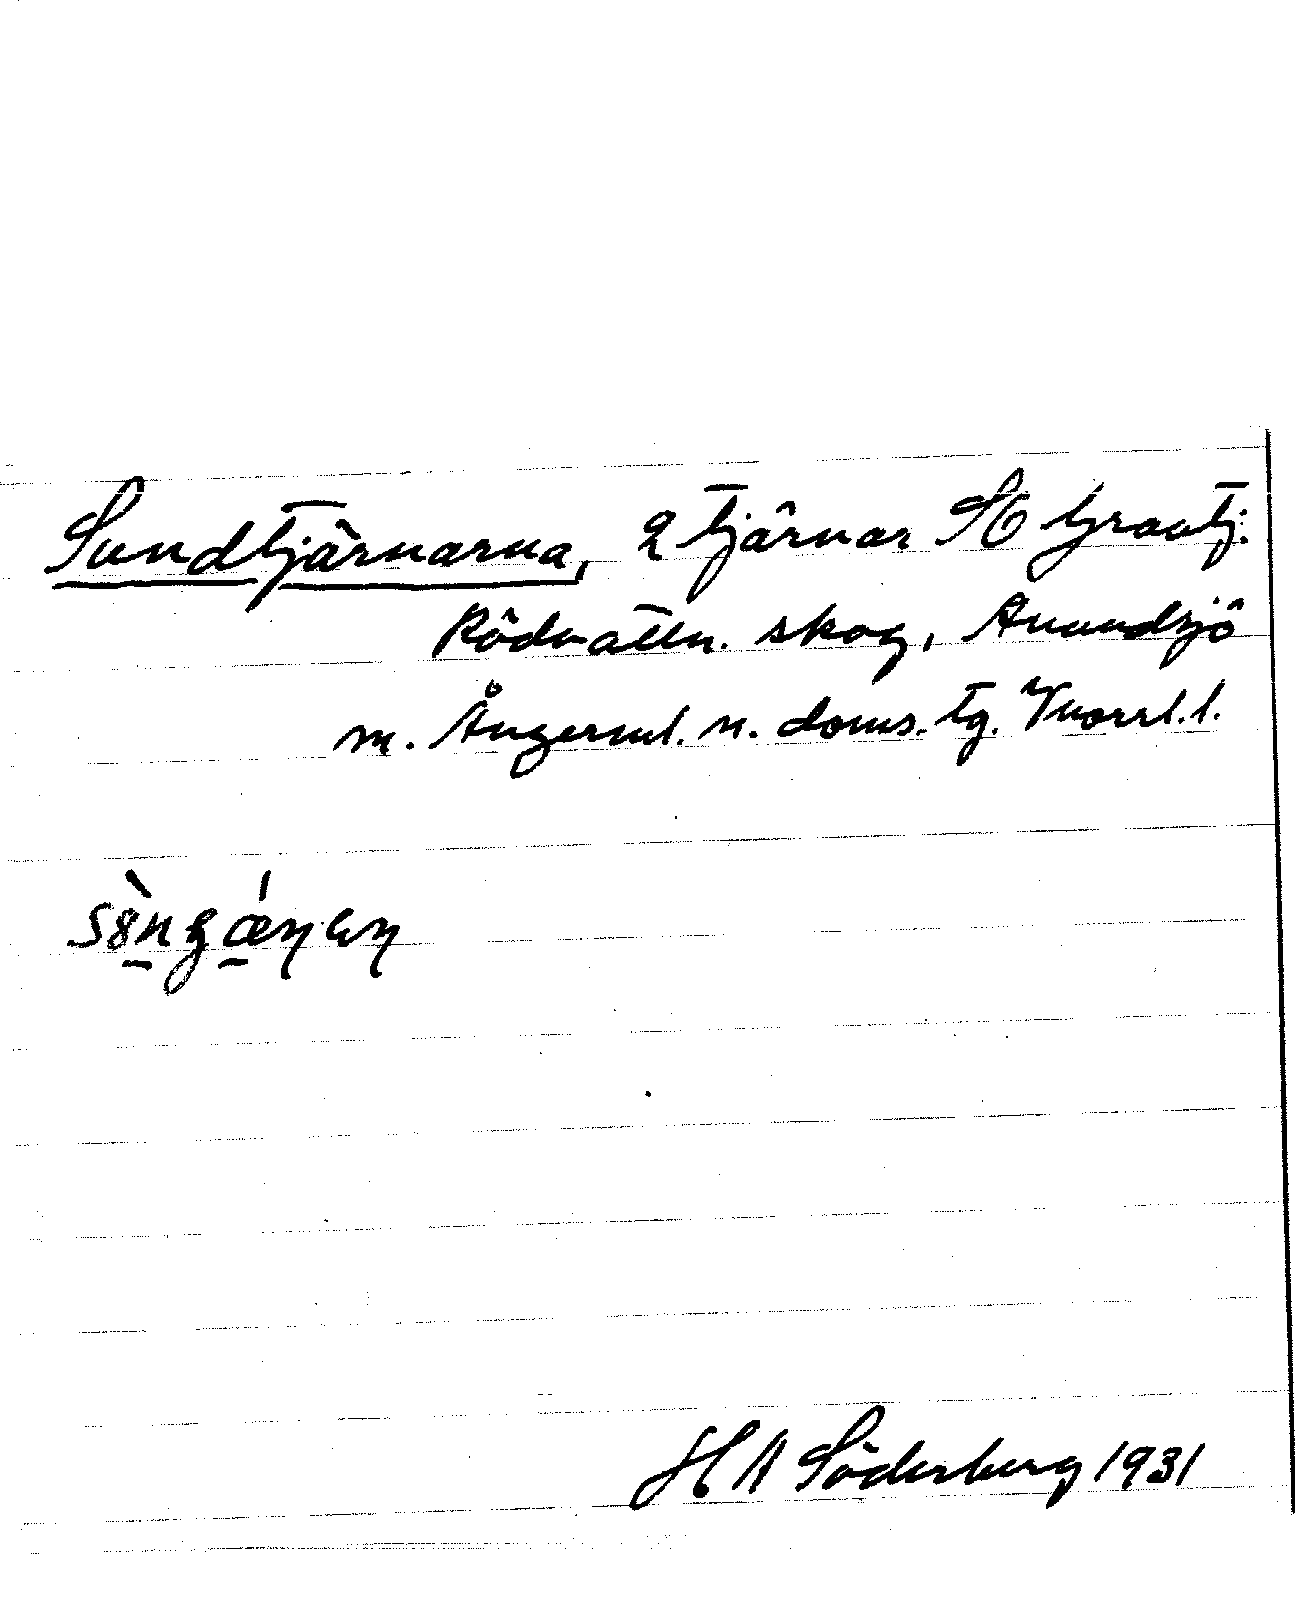 Sundtjärnarna, 2 tjärnar SO Gravtj.
Rödvattn. skog, Anundsjö
m. Ångerml. n. doms. tg. Vnorrl. l.
H A Söderberg 1931